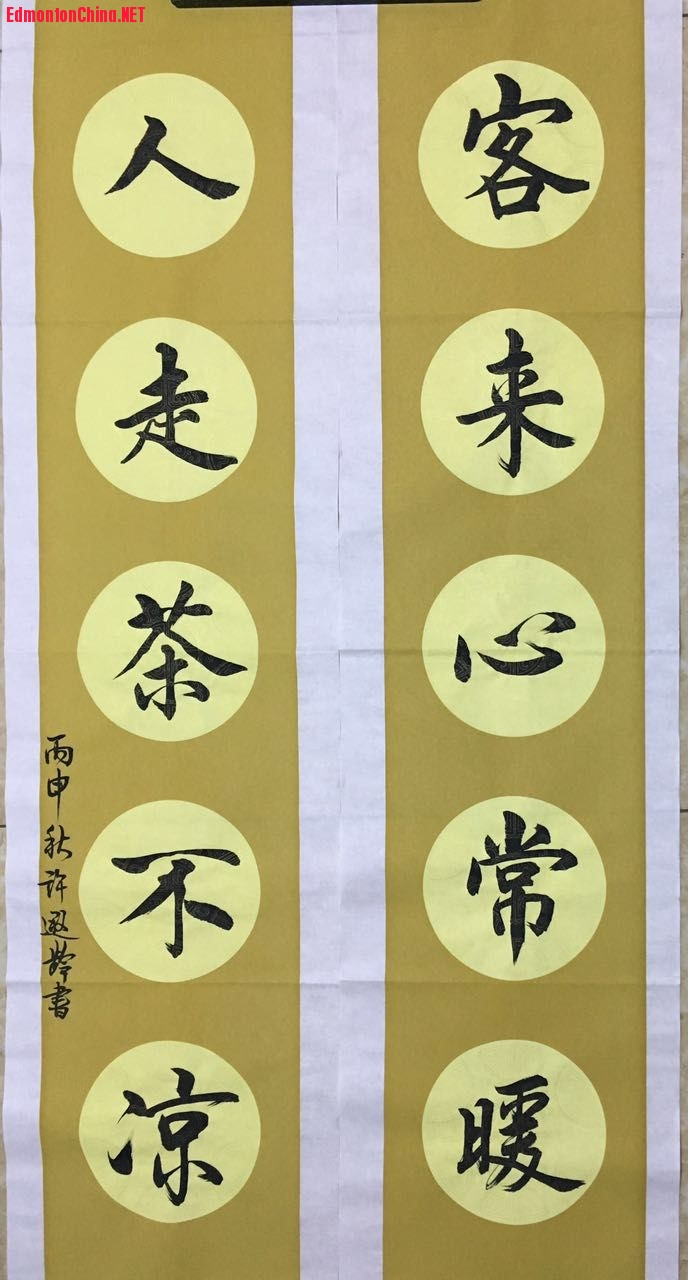 EdmontonChina.NET
客来心常暖
人走茶不凉
丙申秋许遐龄书